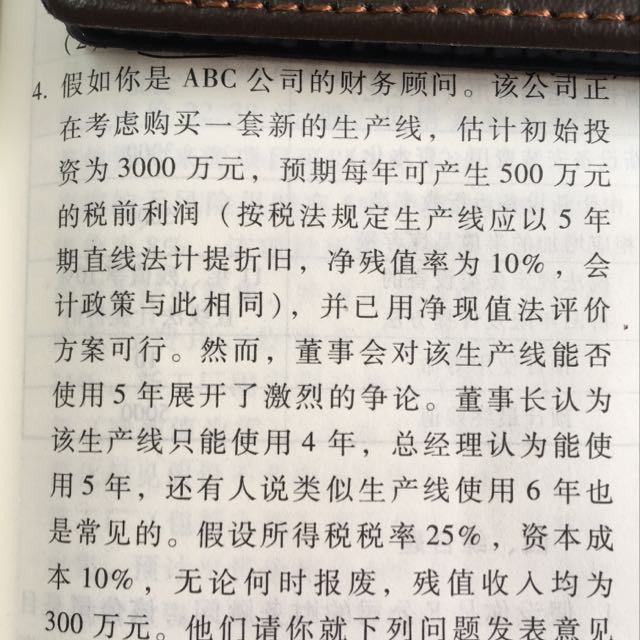 (2)
4. 假如你是 ABC 公司的财务顾问。该公司正
在考虑购买一套新的生产线，估计初始投
资为 3000 万元，预期每年可产生 500 万元
的税前利润（按税法规定生产线应以 5 年
期直线法计提折旧，净残值率为 10%，会
计政策与此相同），并已用净现值法评价
方案可行。然而，董事会对该生产线能否
使用 5 年展开了激烈的争论。董事长认为
该生产线只能使用 4 年，总经理认为能使
用 5 年，还有人说类似生产线使用 6 年也
是常见的。假设所得税税率 25%，资本成
本 10%，无论何时报废，残值收入均为
300 万元。他们请你就下列问题发表意见